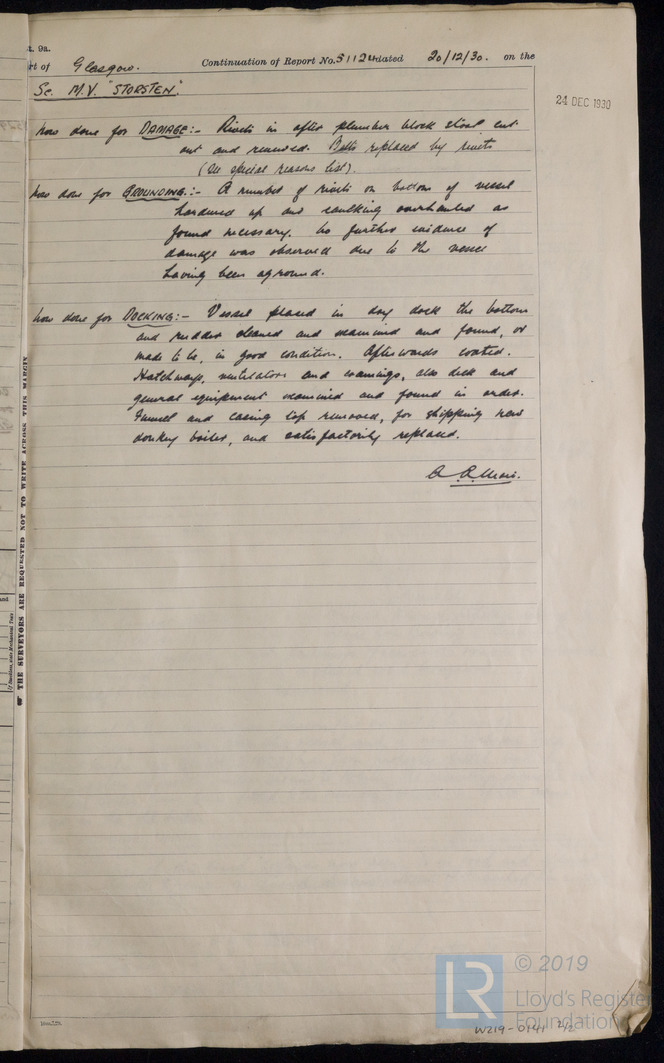 t. 9a.
rt of Glasgow. Continuation of Report No. 51124 dated 20/12/30. on the
Sc. M.V. "STORSTEN".
24 DEC 1930
Now done for DAMAGE:- Rivets in after plumber block stool cut
out and renewed. Bolts replaced by rivets
(See special reasons list).
Now done for GROUNDING:- A number of rivets on bottom of vessel
hardened up and caulking overhauled as
found necessary. No further evidence of
damage was observed due to the vessel
having been aground.
Now done for DOCKING:- Vessel placed in dry dock the bottom
and rudder cleaned and examined and found, or
made to be, in good condition. Afterwards coated.
Hatchways, ventilators and coamings, also deck and
general equipment examined and found in order.
Funnel and casing top removed, for shipping new
donkey boiler, and satisfactorily replaced.
THE SURVEYORS ARE REQUESTED NOT TO WRITE ACROSS THIS MARGIN
© 2019
LR
Lloyd's Register
Foundation
W219-0141 2/2